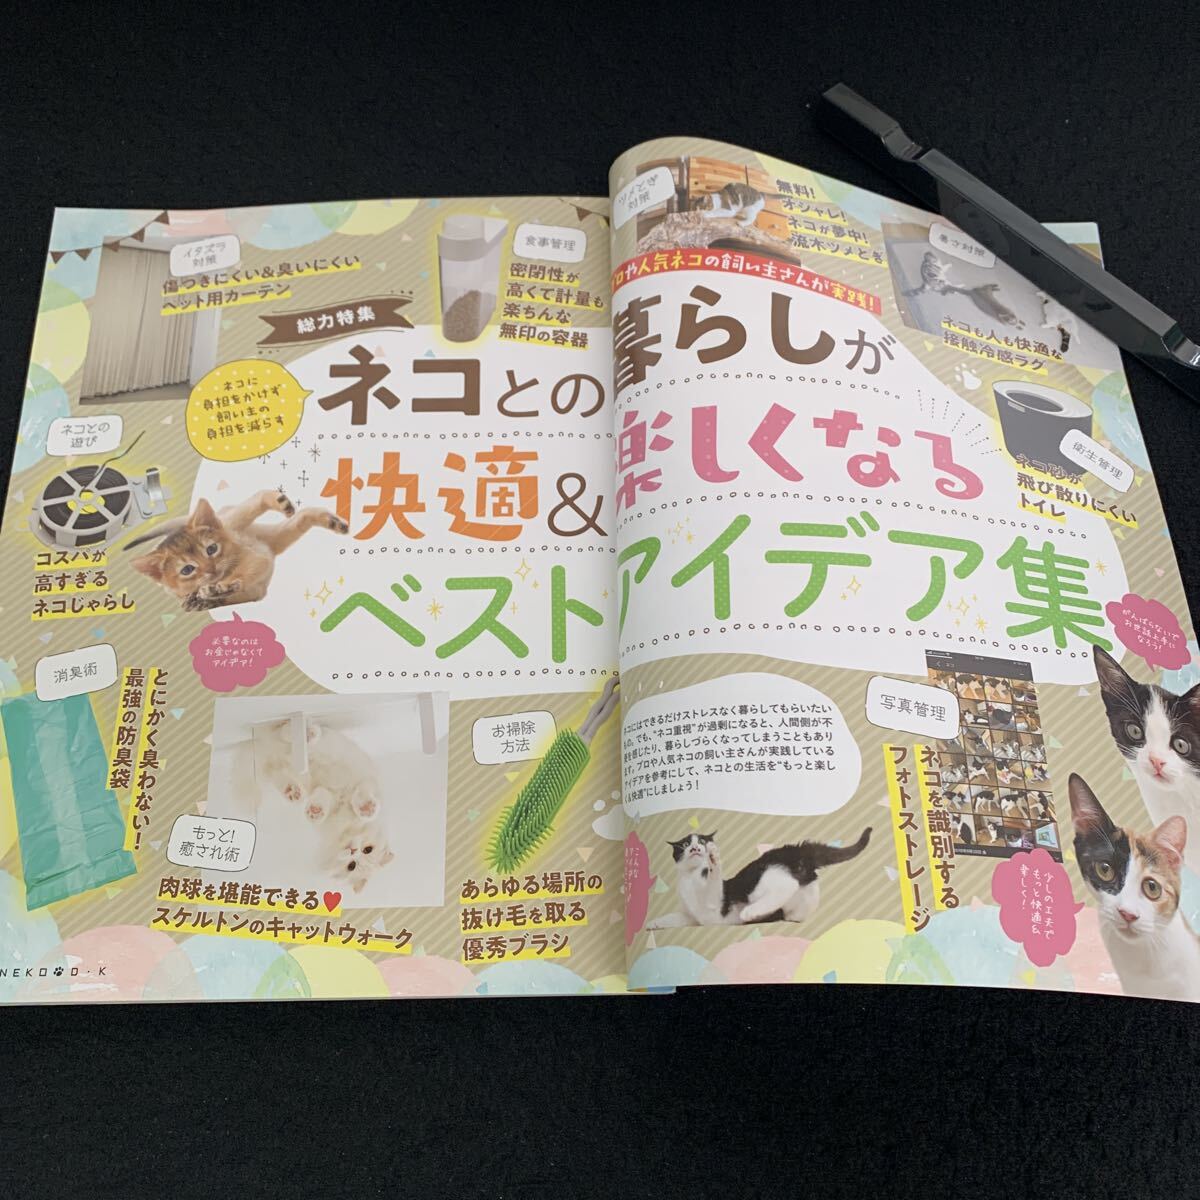 イタズラ
対策
傷つきにくい&臭いにくい
ペット用カーテン
食事管理
密閉性が
高くて計量も
楽ちんな
無印の容器
総力特集
ネコに
負担をかけず
飼い主の
負担を減らす
ネコとの
快適&
ベスト
ネコとの
遊び
コスパが
高すぎる
ネコじゃらし
必要なのは
お金じゃなくて
アイデア!
消臭術
とにかく臭わない!
最強の防臭袋
もっと!
癒され術
肉球を堪能できる♥
スケルトンのキャットウォーク
お掃除
方法
あらゆる場所の
抜け毛を取る
優秀ブラシ
NEKO D・K
ツメとぎ
対策
無料!
オシャレ!
ネコが夢中!
流木ツメとぎ
プロや人気ネコの飼い主さんが実践!
暮らしが
楽しくなる
アイデア集
暑さ対策
ネコも人も快適な
接触冷感ラグ
衛生管理
ネコ砂が
飛び散りにくい
トイレ
がんばらないで
お世話上手に
なろう!
ネコにはできるだけストレスなく暮らしてもらいたい
もの。でも、“ネコ重視”が過剰になると、人間側が不
を感じたり、暮らしづらくなってしまうこともあり
ます。プロや人気ネコの飼い主さんが実践している
アイデアを参考にして、ネコとの生活を“もっと楽し
く&快適”にしましょう!
写真管理
ネコを識別する
フォトストレージ
< ネコ
少しの工夫で
もっと快適&
楽しく!